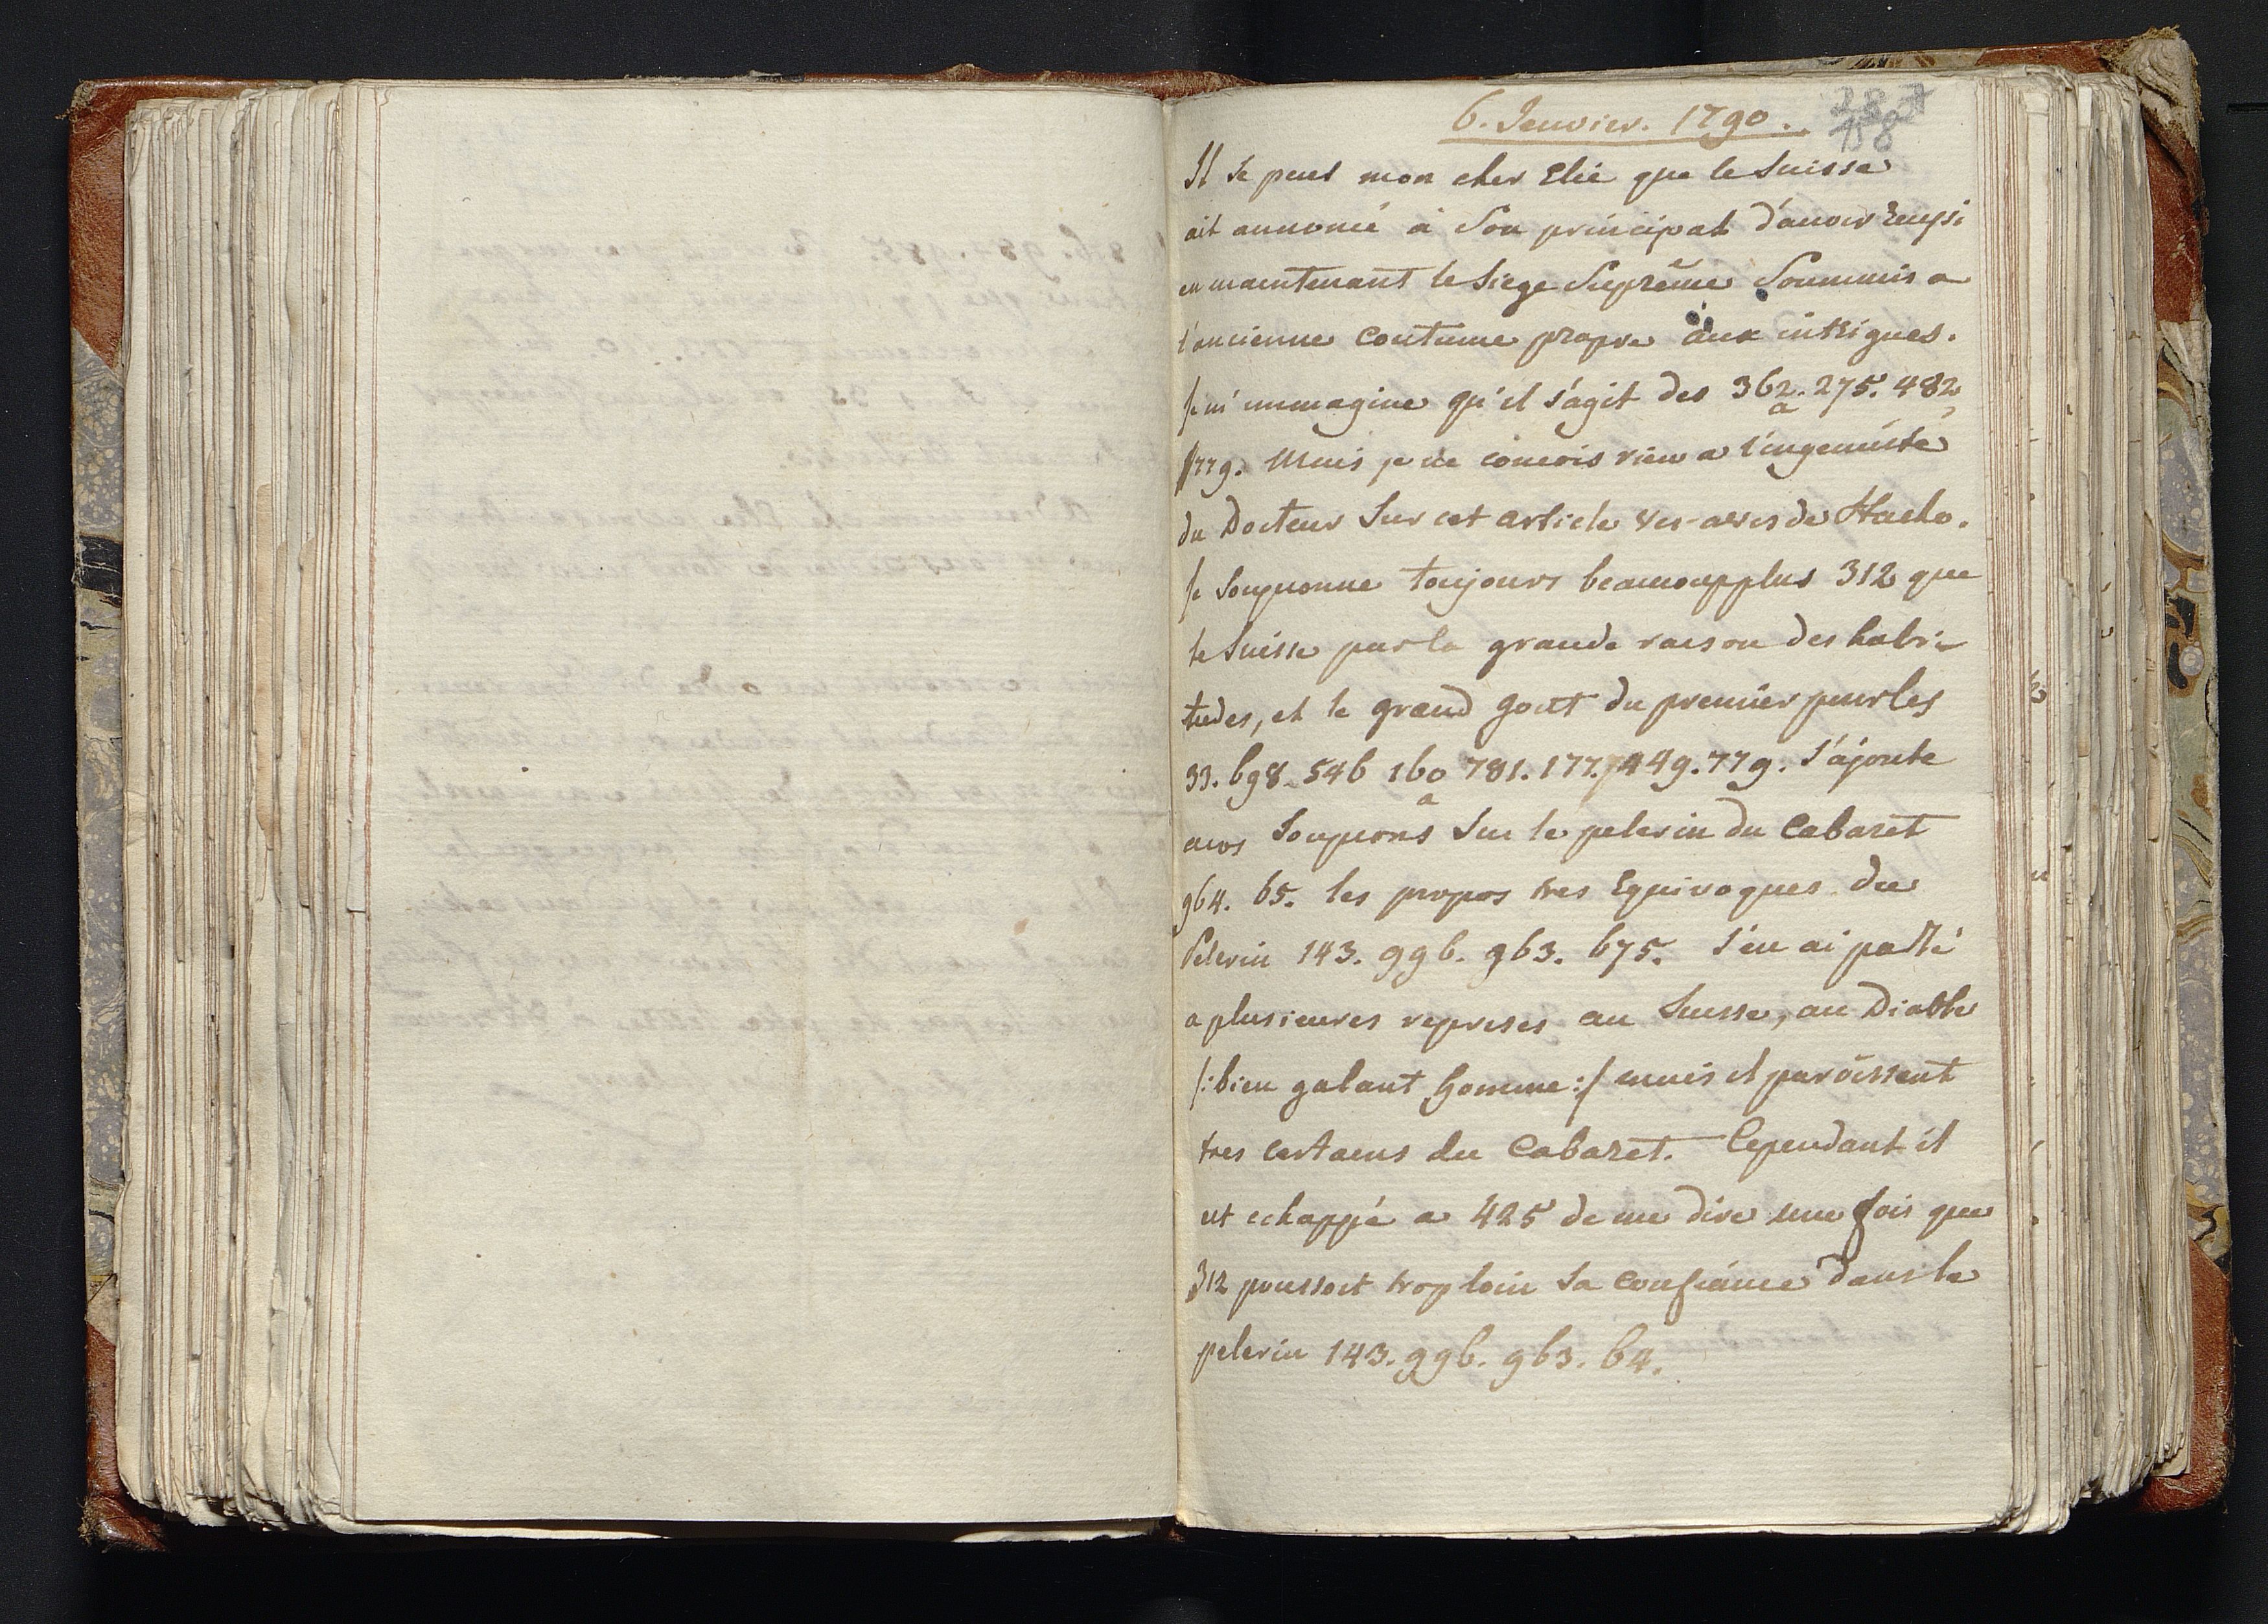 6. Jenvier. 1790.
287
158
Il se peut mon cher Elie que le Suisse
ait annoncé à son principal d'avoir reussi
en maintenant le Siege Suprême Soummis a
l'ancienne coutume propre aux intrigues.
je m'immagine qu'il s'agit des 362. 275. 482
a
779. Mais je ne concois rien a l'ingenuité
du Docteur Sur cet article vis-avis de
je soupconne toujours beaucoup plus 312 que
le Suisse par la grande raison des habi-
tudes, et le grand gout du premier pour les
33. 698. 546 160 781. 177. 449. 779. J'ajoute
a
aux soupcons sur le pelerin du Cabaret
964. 65. les propos tres Equivoques du
Pelerin 143. 996. 963. 675. J'en ai parlé
a plusieures reprises au Suisse, au Diable
/: bien galant homme :/ mais il paroissent
tres certaens du Cabaret. Cependant il
est echappé a 425 de me dire une fois que
312 poussoit trop loin sa confiance dans le
pelerin 143. 996. 963. 64.